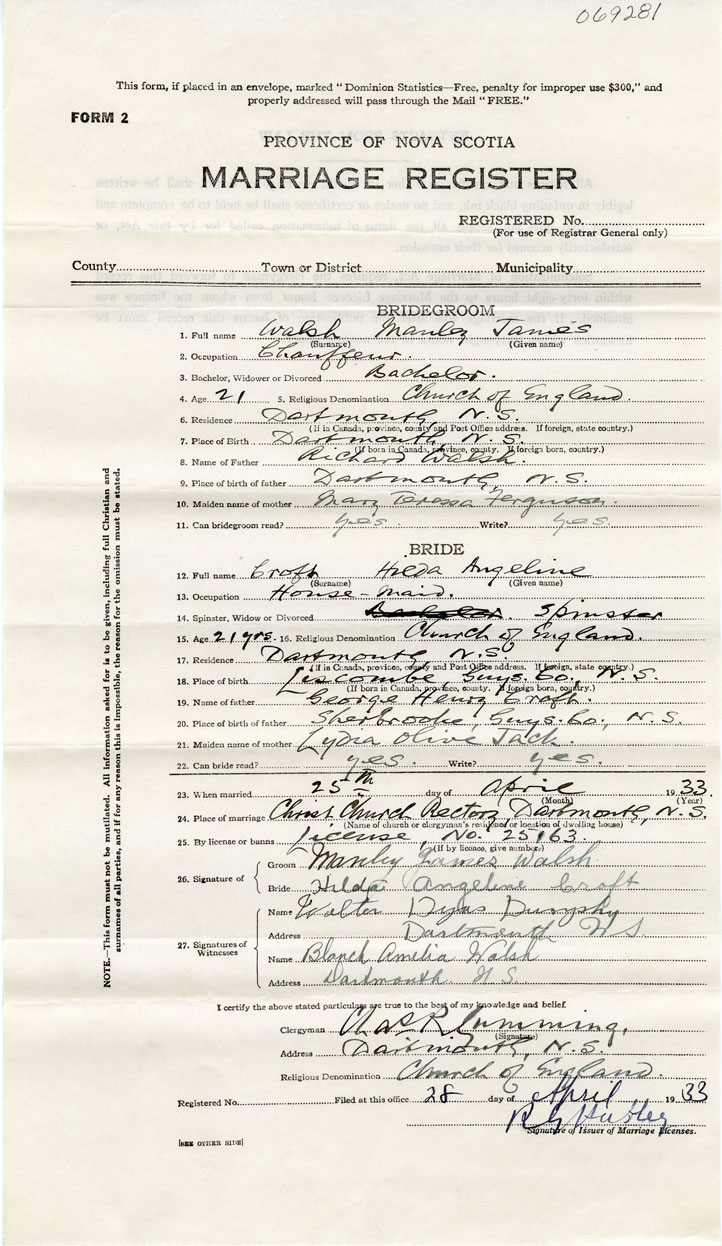 069281
This form, if placed in an envelope, marked "Dominion Statistics—Free, penalty for improper use $300," and
properly addressed will pass through the Mail "FREE."
FORM 2
PROVINCE OF NOVA SCOTIA
MARRIAGE REGISTER
REGISTERED No.
(For use of Registrar General only)
County Town or District Municipality
BRIDEGROOM
1. Full name Walsh Manley James
(Surname) (Given name)
2. Occupation Chauffeur.
3. Bachelor, Widower or Divorced Bachelor.
4. Age 21 5. Religious Denomination Church of England.
6. Residence Dartmouth, N.S.
(If in Canada, province, county and Post Office address. If foreign, state country.)
7. Place of Birth Dartmouth, N.S.
(If born in Canada, province, county. If foreign born, country.)
8. Name of Father Richard Walsh.
9. Place of birth of father Dartmouth, N.S.
10. Maiden name of mother Mary Teressa Ferguson.
11. Can bridegroom read? yes. Write? yes.
BRIDE
12. Full name Croft Hilda Angeline
(Surname) (Given name)
13. Occupation House-maid.
14. Spinster, Widow or Divorced Bachelor. Spinster
15. Age 21 yrs. 16. Religious Denomination Church of England.
17. Residence Dartmouth, N.S.
(If in Canada, province, county and Post Office address. If foreign, state country.)
18. Place of birth Liscombe, Guys. Co., N.S.
(If born in Canada, province, county. If foreign born, country.)
19. Name of father George Henry Croft.
20. Place of birth of father Sherbrooke, Guys. Co., N.S.
21. Maiden name of mother Lydia Olive Jack.
22. Can bride read? yes. Write? yes.
23. When married 25th day of April 1933.
(Month) (Year)
24. Place of marriage Christ Church Rectory, Dartmouth, N.S.
(Name of church or clergyman's residence or location of dwelling house)
25. By license or banns License, No. 25163.
(If by licence, give number.)
26. Signature of
Groom Manley James Walsh
Bride Hilda Angeline Croft
27. Signatures of Witnesses
Name Walter Dunphy
Address Dartmouth N S.
Name Blanch Amelia Walsh
Address Dartmouth. N.S.
I certify the above stated particulars are true to the best of my knowledge and belief.
Clergyman Chas R. Cumming,
(Signature)
Address Dartmouth, N.S.
Religious Denomination Church of England.
Registered No. Filed at this office 28 day of April 1933
Signature of Issuer of Marriage Licenses.
[SEE OTHER SIDE]
NOTE.—This form must not be mutilated. All information asked for is to be given, including full Christian and
surnames of all parties, and if for any reason this is impossible, the reason for the omission must be stated.